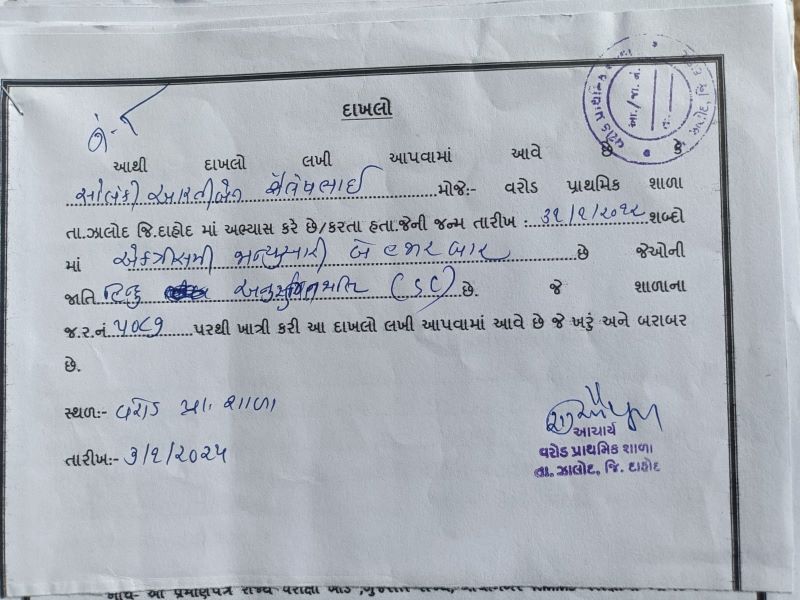 દાખલો
આથી દાખલો લખી આપવામાં આવે છે કે
સોલંકી આરતીબેન શૈલેષભાઈ મોજે:- વરોડ પ્રાથમિક શાળા
તા.ઝાલોદ જિ.દાહોદ માં અભ્યાસ કરે છે/કરતા હતા.જેની જન્મ તારીખ : ૩૧/૧/૨૦૧૨ શબ્દો
માં એકત્રીસમી જાન્યુઆરી બે હજાર બાર છે જેઓની
જાતિ હિન્દુ અનુસુચિત જાતિ (SC) છે. જે શાળાના
જ.ર.નં. ૫૦૮૧ પરથી ખાત્રી કરી આ દાખલો લખી આપવામાં આવે છે જે ખરું અને બરાબર
છે.
સ્થળ:- વરોડ પ્રા. શાળા
તારીખ:- ૩/૧/૨૦૨૫
આચાર્ય
વરોડ પ્રાથમિક શાળા
તા. ઝાલોદ, જિ. દાહોદ
આ./જા. નં.
તા.
નોંધ- આ પ્રમાણપત્ર રાજ્ય પરીક્ષા બોર્ડ